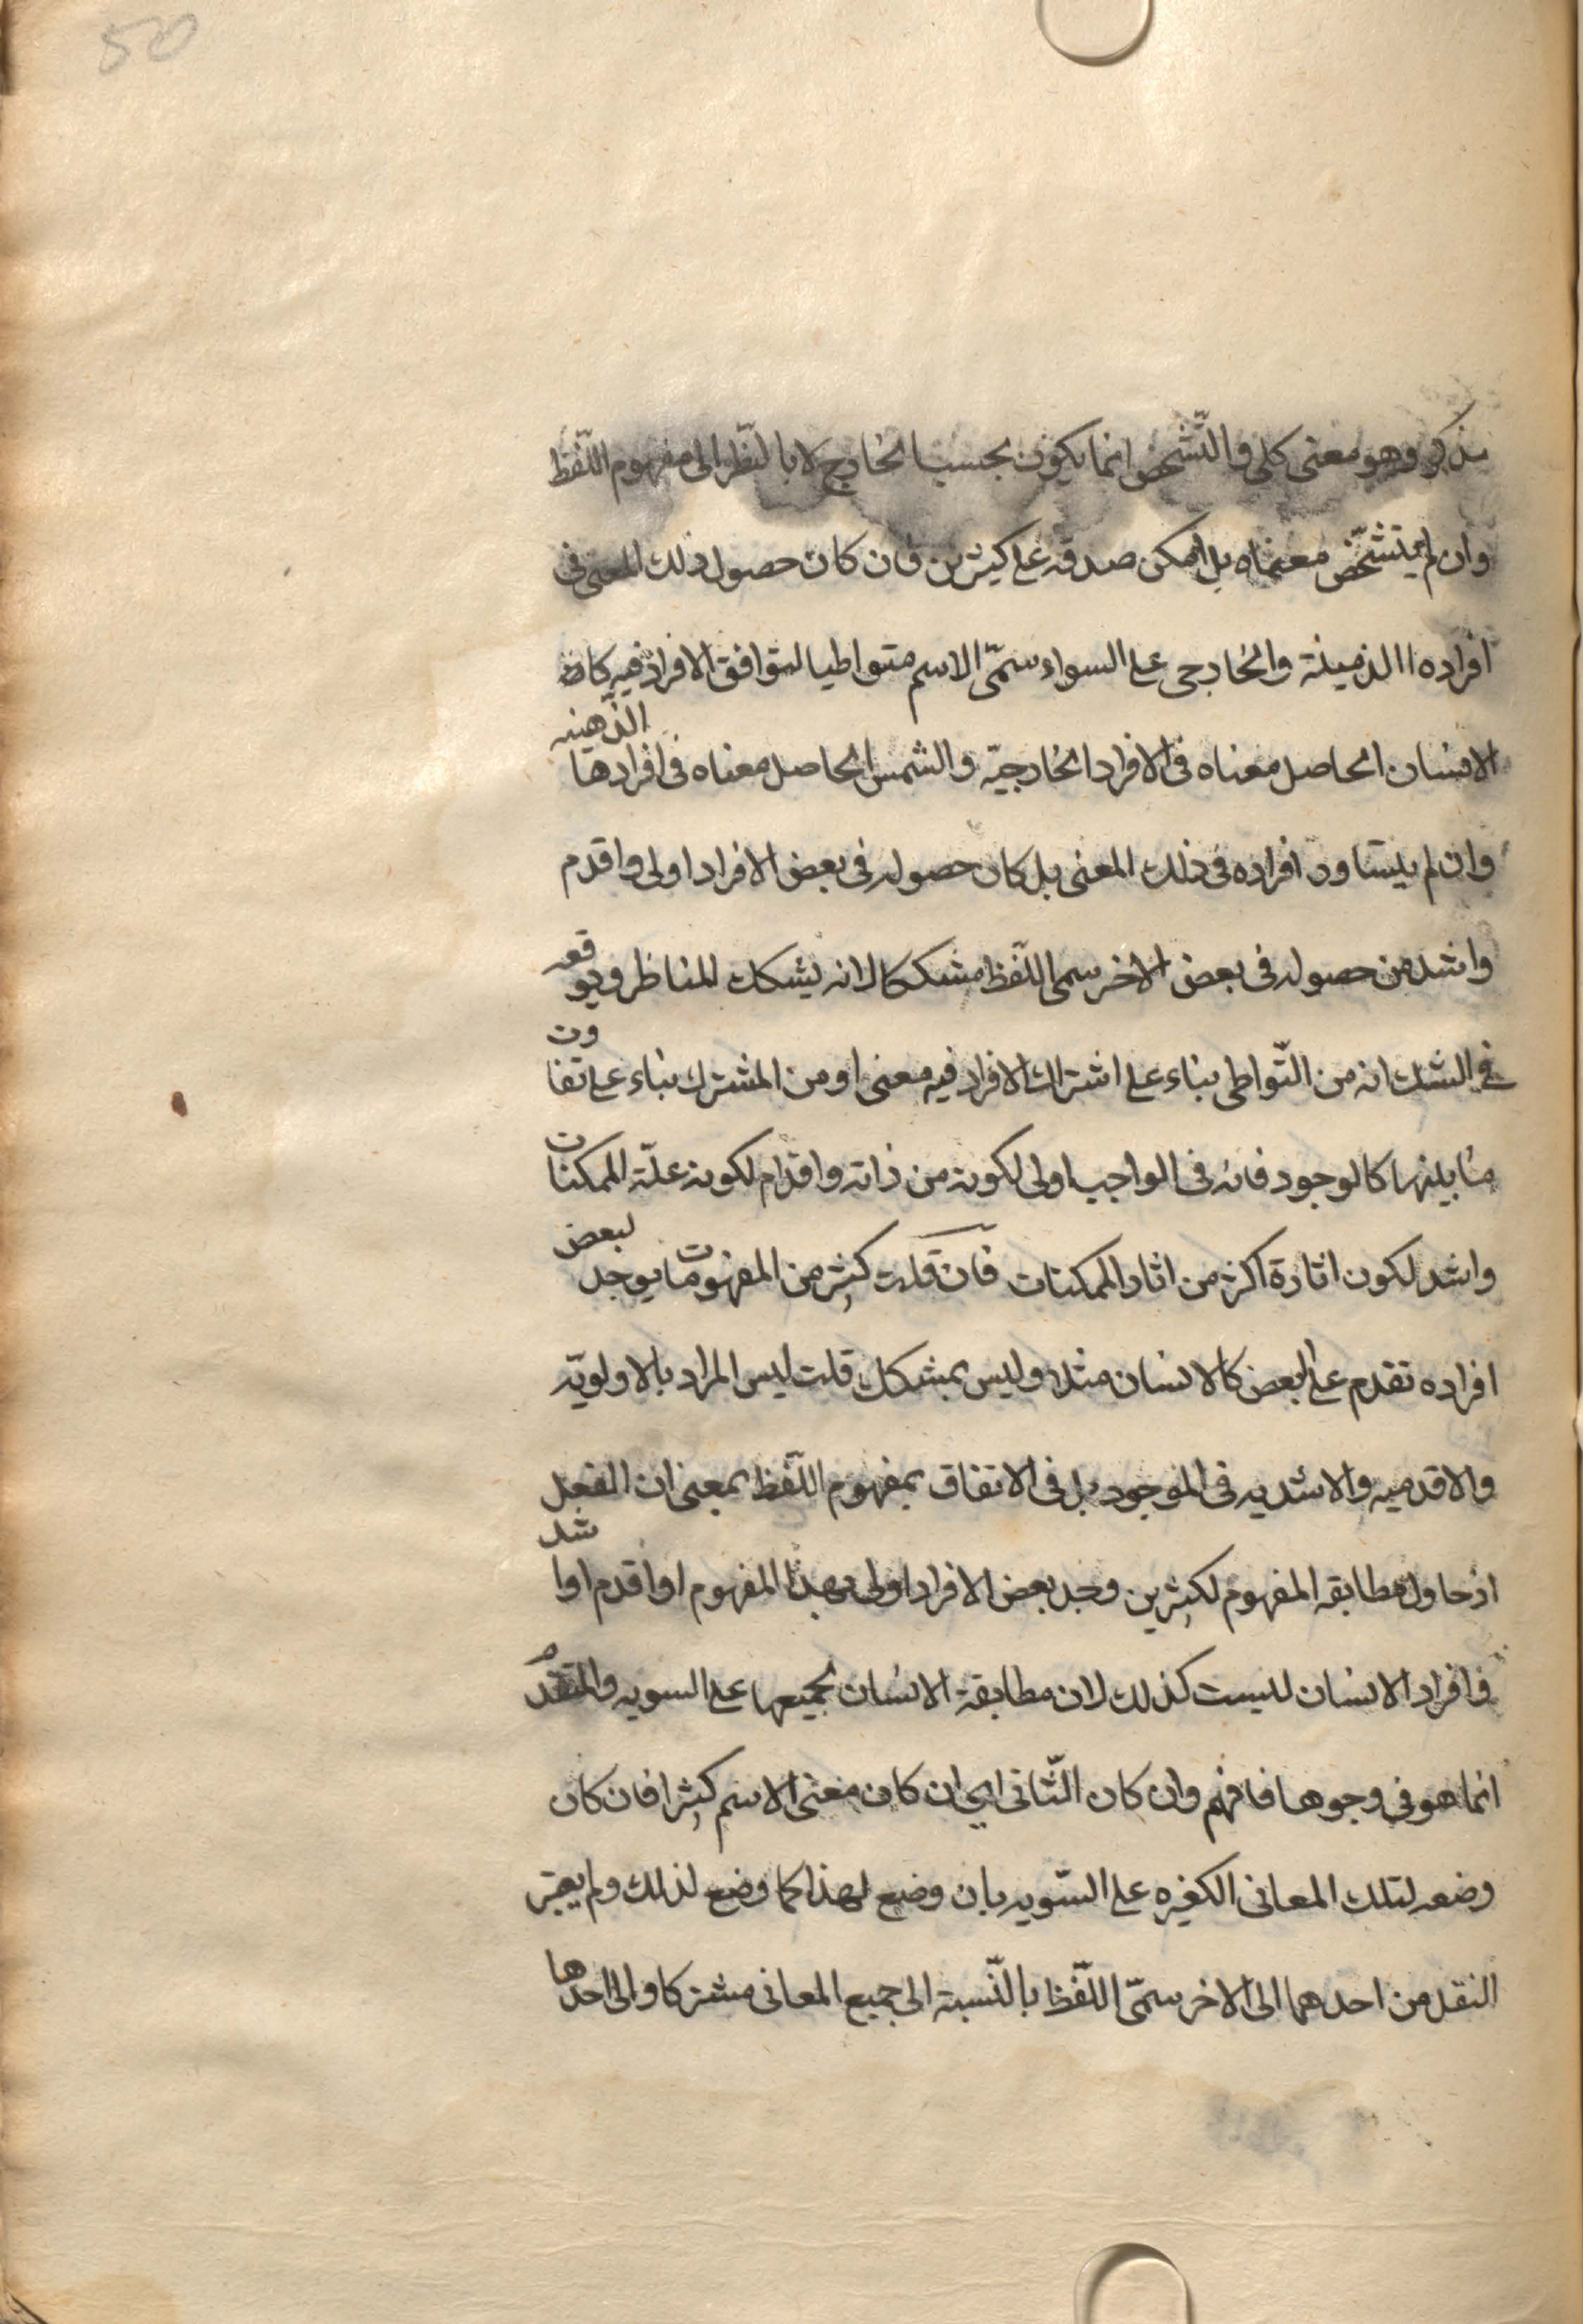 50
مذكر وهو معنى كلى والتّشخّص انما يكون بحسب الخارج لا بالنّظر الى مفهوم اللّفظ
وان لم يتشخّص معناه بل امكن صدقه على كيثرين فان كان حصول ذلك المعنى فى
افراده الذهينة والخارجى على السواء سمّى الاسم متواطيا لتوافق الافراد فيه كان
الانسان الحاصل معناه فى الافراد الخارجيّه والشمس الحاصل معناه فى افرادها الذّهنيه
وان لم يتساود افراده فى ذلك المعنى بل كان حصوله فى بعض الافراد اولى واقدم
واشد من حصوله فى بعض الاخر سمى اللّفظ مشككا لانه يشكك للناظر ويوقعه
فى الشك انه من التّواطى بناء على اشتراك الافراد فيه معنى او من المشترك بناء على تفاوت
ما بينها كالوجود فانه فى الواجب اولى لكونه من ذاته واقدم لكونه علّة الممكنات
واشد لكون اثاره اكثر من اثار الممكنات فان قلت كيثر من المفهومات يوجد لبعض
افراده تقدم على البعض كالانسان مثلا وليس بمشكك قلت ليس المراد بالاولويّه
والاقدميه والاشديه فى الموجود بل فى الاتفاق بمفهوم اللّفظ بمعنى ان الفعل
اذحاول مطابقه المفهوم لكيثرين وجد بعض الافراد اولى بهذا المفهوم او اقدم او اشد
وافراد الانسان لليست كذلك لان مطابقة الانسان لجميعها على السويه والتقدم
انما هو فى وجوها فافهم وان كان الثّانى اى ان كان معنى الاسم كيثرا فان كان
وضعه لتلك المعانى الكيثره على السّويه بان وضع لهذا كما وضع لذلك ولم يعتبر
النقل من احدهما الى الاخر سمّى اللّفظ بالنّسبة الى جميع المعانى مشتركا والى احدها